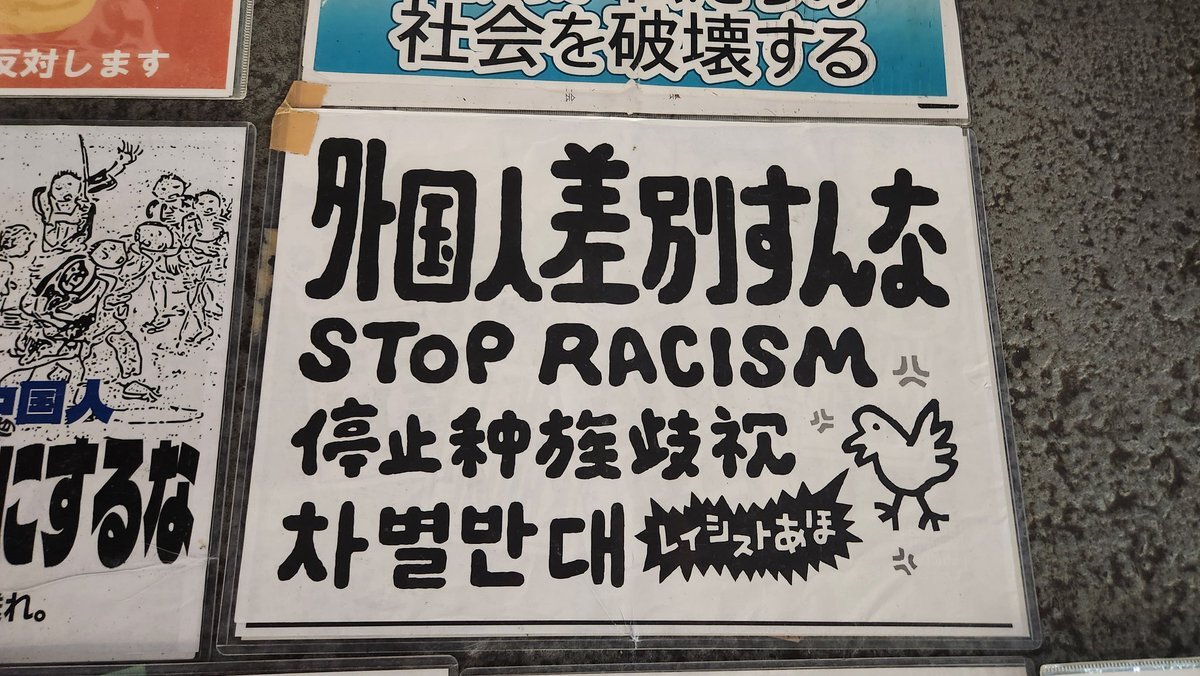 反対します
社会を破壊する
外国人差別すんな
STOP RACISM
停止种族歧视
차별만대
レイシストあほ
中国人
にするな
れ。